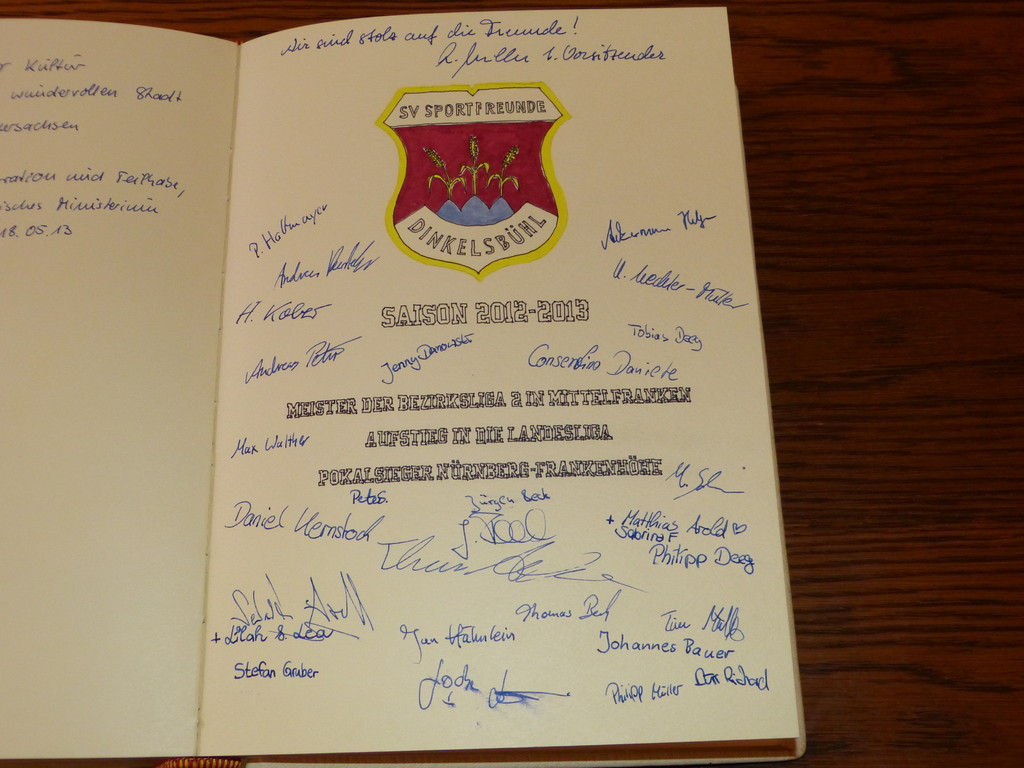 Kultur
wundervollen Stadt
ersachsen
ration und Teilhabe,
isches Ministerium
18.05.13
Wir sind stolz auf die Freunde!
1. Vorsitzender
SV SPORTFREUNDE
DINKELSBÜHL
P. Holtmayer
Andreas
H. Kober
SAISON 2012-2013
Tobias Deeg
Andreas Peter
Jenny Danowski
Consentino Daniele
MEISTER DER BEZIRKSLIGA 2 IN MITTELFRANKEN
Max Walther
AUFSTIEG IN DIE LANDESLIGA
POKALSIEGER NÜRNBERG-FRANKENHÖHE
Peter S.
Jürgen Beck
Daniel Kernstock
J. Beck
+ Matthias Arold ♡
Sabrina F
Philipp Deeg
Thomas Beck
Tim
+ Lilah & Lea
Jan Hähnlein
Johannes Bauer
Stefan Gruber
Philipp Müller
Richard